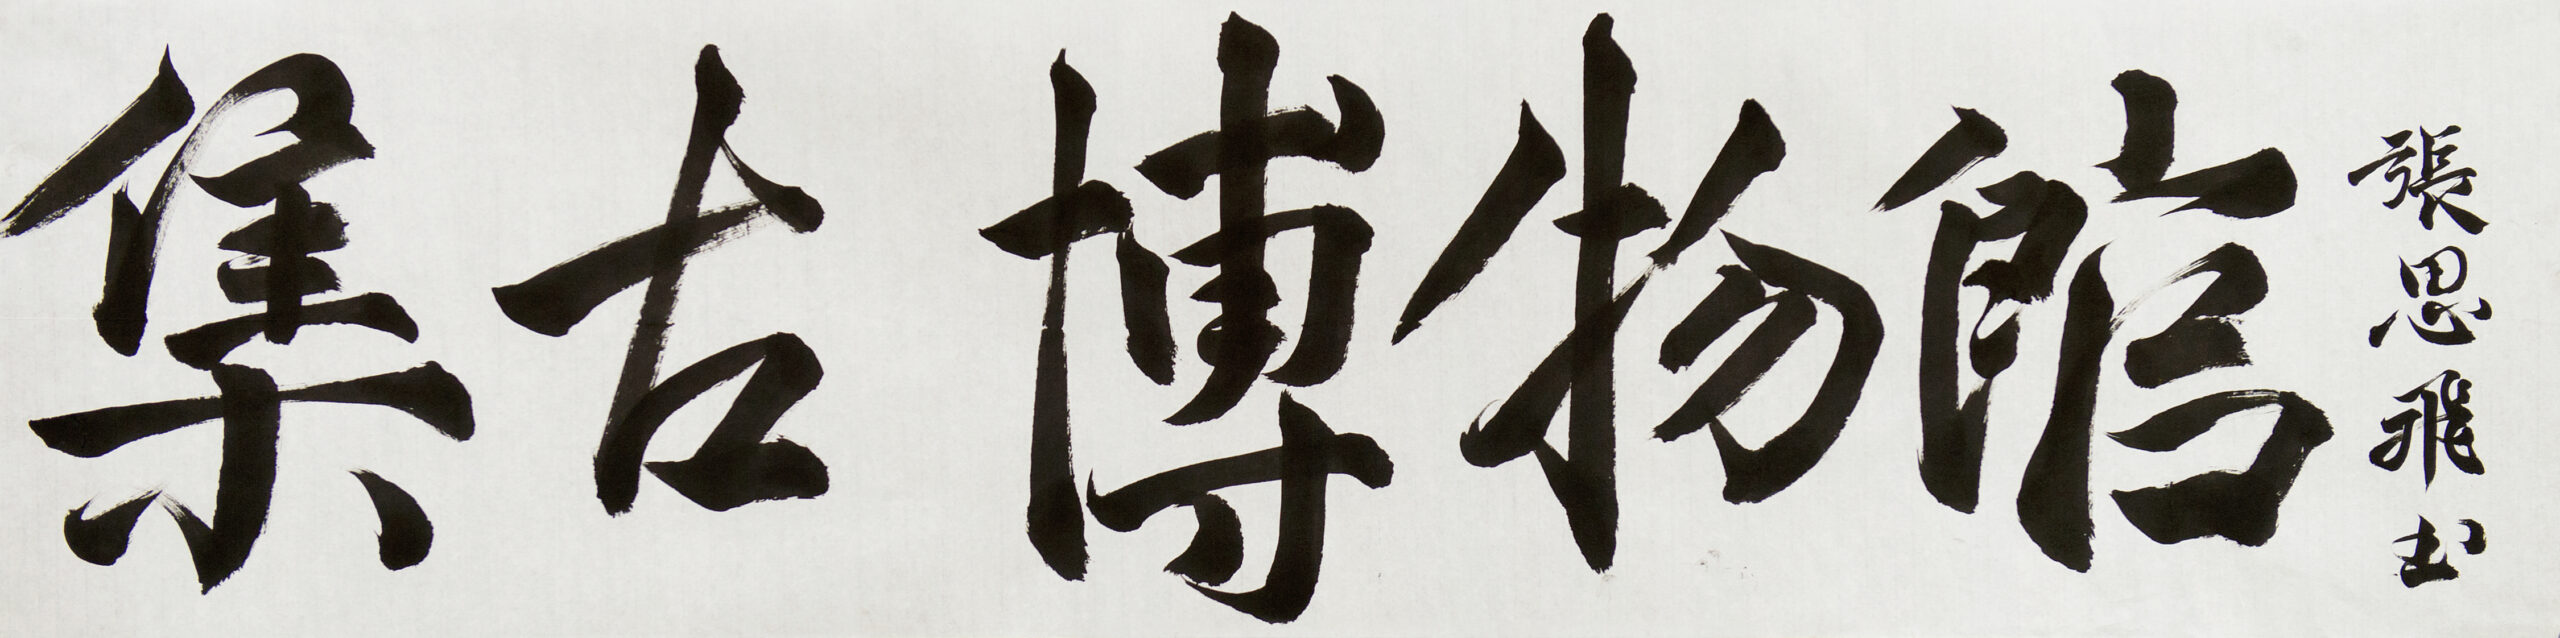 集古博物館
張思飛书